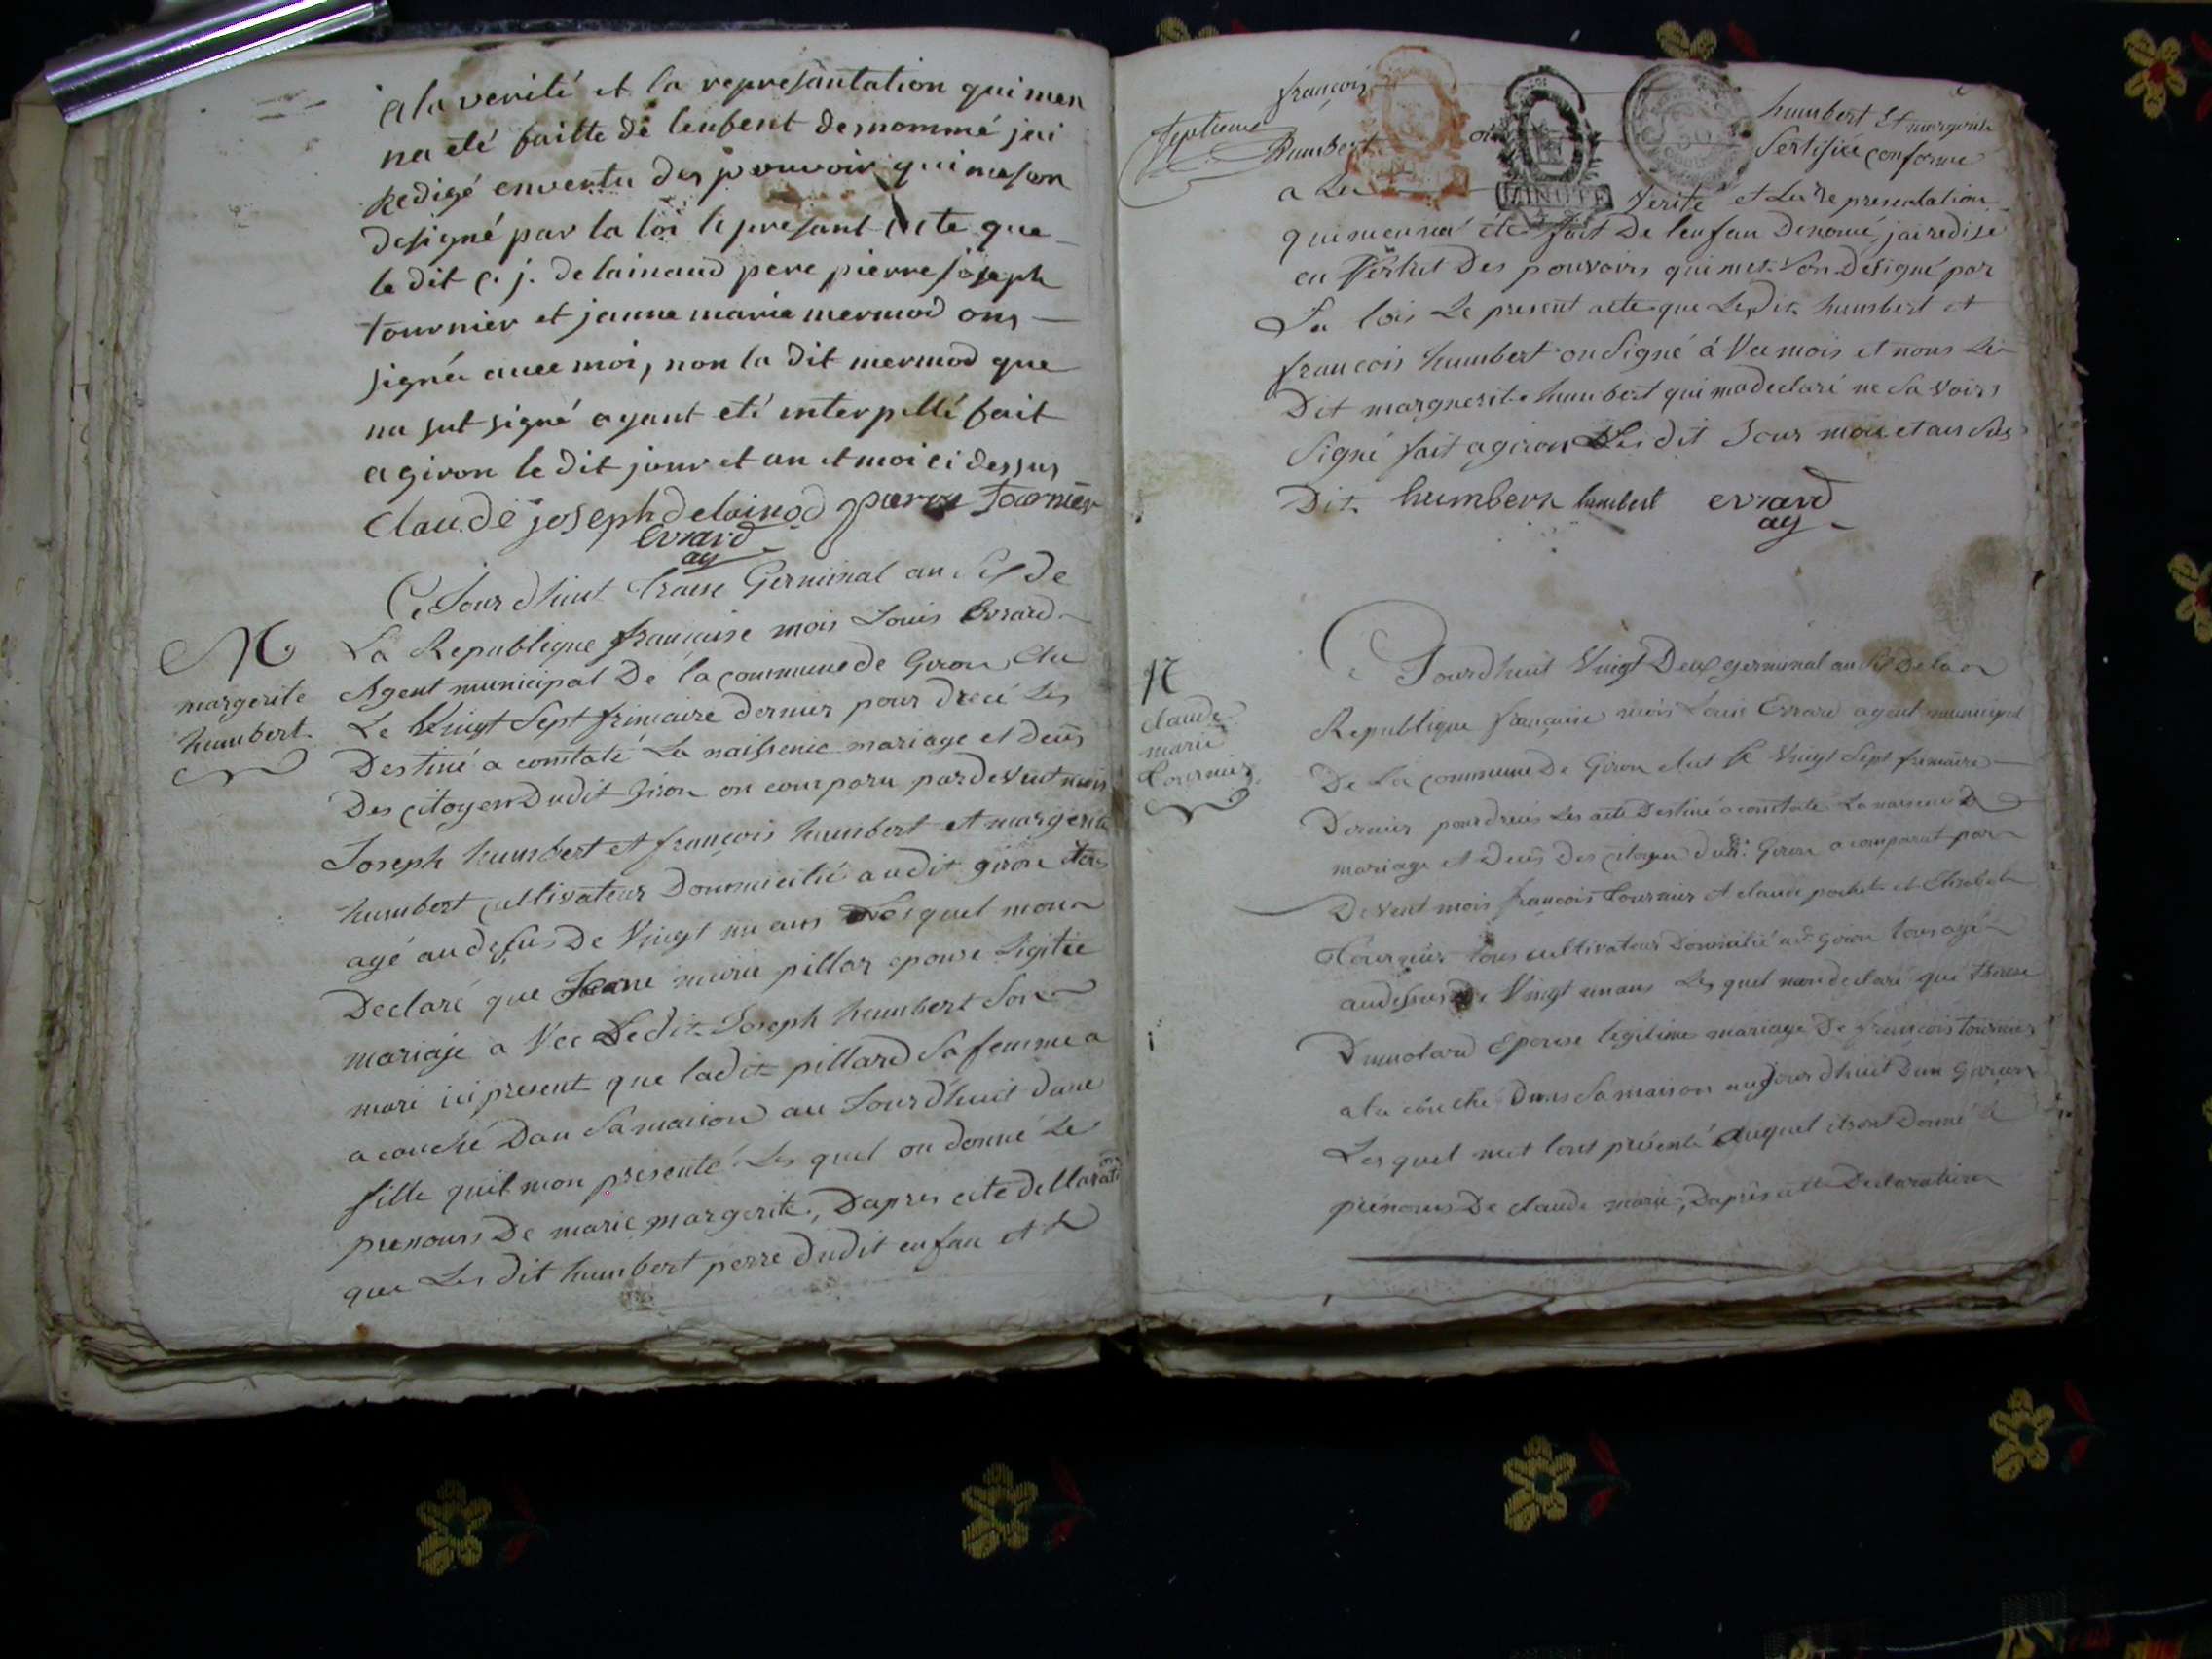 a la verité et la represantation qui men
na eté faitte de lenfent denommé jai
Redigé envertu des pouvoir qui me son
designé par la loi le presant acte que
le dit c. j. delainaud pere pierre joseph
tournier et jeanne marie mermod ons
signéz avec moi, non la dit mermod que
na sut signé ayant eté interpellé fait
a giron le dit jour et an et moi ci dessus
Claude joseph delainod pierre Tournier
Evrard
ag
Ce Jourdhuit traise Germinal an Six de
La Republique française mois Louis Evrard
Agent municipal De la commune de Giron Elu
Le Vingt Sept frimaire dernier pour drecé Les
Destiné a constaté La naissence mariage et decès
Des citoyen Dudit Giron on comparu pardevent mois
Joseph humbert et françois humbert et margerite
humbert cultivateur Dommicilié audit giron tous
agé au desus De Vingt un ans Les quel mon
Declaré que Jeane marie pillar epouse Ligitie
mariaje a Vec Ledit Joseph humbert Son
mari ici present que ladit pillard Sa femme a
acouché Dan Sa maison au Jourdhuit dune
fille quil mon presenté Les quel on donné Le
prenoms De marie margerite, Dapres cete dellarati
que Les dit humbert perre dudit enfan et de
N
margerite
humbert
Septieme
françois
humbert et margerite
humbert
Sertifié conforme
a La
MINUTE
Verité et La Representation
qui men na été fait De lenfan Denomé, jai redisé
en Vertut Des pouvoirs qui met Son Designé par
La lois Le present acte que Ledit humbert et
françois humbert on Signé a Vec mois et nons La
Dit marguerite humbert qui ma declaré ne Savoirs
Signé fait a giron Les dit Jour mois et an Sus
Dit humbert humbert evrard
ag
N
claude
marie
tournier
Ce Jourdhuit Vingt Deux germinal an Six De la
Republique française mois Louis Evrard agent municipal
De La commune De Giron elut le Vingt Sept frimaire
Dernier pour drecés Les acte Destiné a constaté La naissence De
mariage et Decès Des citoyen dudt Giron a comparut par
Devent mois françois tournier et claude pochet et Elisabet
Tournier tous cultivateur Domicilié udt giron tous agé
audessus De Vingt un ans Les quel mon declaré que therese
Dumolard Epouse legitime mariage De françois tournier
a la couché Dans Sa maison aujourdhuit Dun Garçon
Les quel met lont présenté auquel ils ont Donné Le
prénoms De claude marie, Daprès cette Declaration